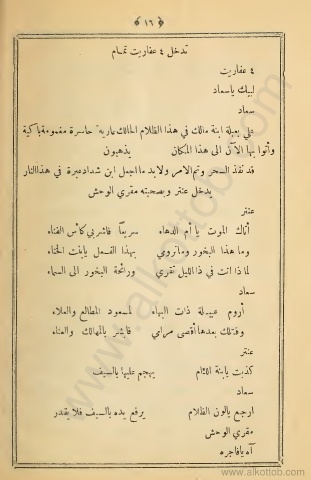 ﴿ ١٦ ﴾
تدخل ٤ عفاريت تمام
٤ عفاريت
لبيك ياسعاد
سعاد
علي بعبلة ابنة مالك في هذا الظلام الحالك عارية حاسرة مغمومة باكية
وأتوا بها الآن الى هذا المكان يذهبون
قد نفذ السحر وتم الامر ولا بد ما اجمل ابن شداد عبرة في هذا النار
يدخل عنتر وبصحبته مقري الوحش
عنتر
أتاك الموت يا أم الدهاء سريعاً فاشربي كأس الفناء
وما هذا البخور وما تروي بهذا الفعل يابنت الخناء
لماذا انت في ذا الليل تقري ورائحة البخور الى السماء
سعاد
أروم عبيلة ذات البهاء لمسعود المطالع والعلاء
وقتلك بعدها أقصى مرامي فابشر بالمهالك والعناء
عنتر
كذبت يابنة اللئام يهجم عليها بالسيف
سعاد
ارجع يالون الظلام يرفع يده بالسيف فلا يقدر
مقري الوحش
آه يا فاجره
www.alkottob.com
www.alkottob.com